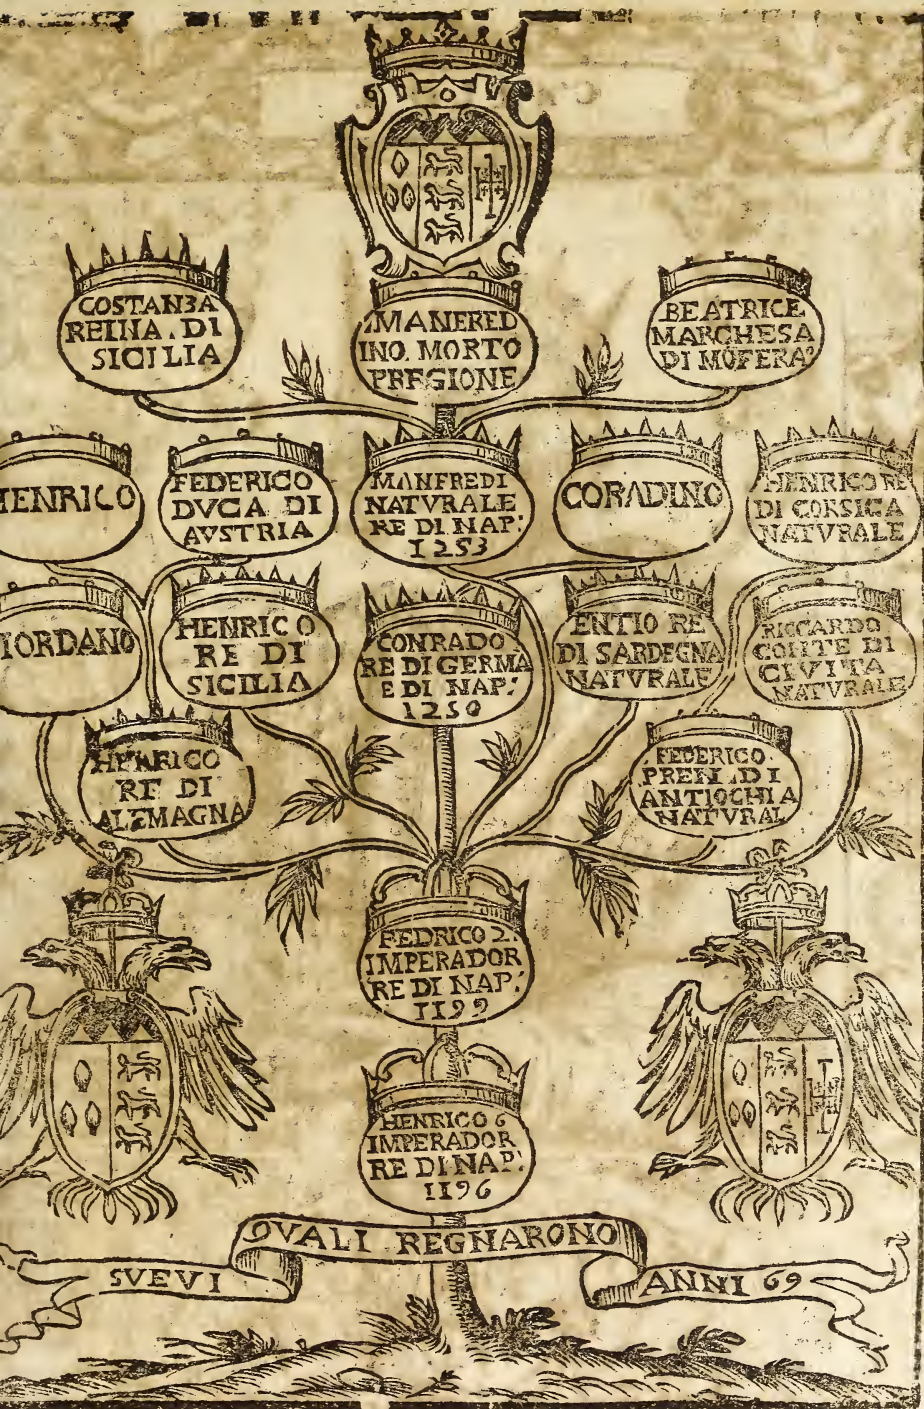 COSTANZA
REINA . DI
SICILIA
MANFRED
INO. MORTO
PREGIONE
BEATRICE
MARCHESA
DI MŌFERA?
HENRICO
FEDERICO
DVCA DI
AVSTRIA
MANFREDI
NATVRALE
RE DI NAP:
1253
CORADINO
HENRICO RE
DI CORSICA
NATVRALE
IORDANO
HENRICO
RE DI
SICILIA
CONRADO
RE DI GERMA
E DI NAP:
1250
ENTIO RE
DI SARDEGNA
NATVRALE
RICCARDO
COHTE DI
CIVITA
NATVRALE
HENRICO
RE DI
ALEMAGNA
FEDERICO.
PREN. DI
ANTIOCHIA
NATVRAL
FEDRICO 2.
IMPERADOR
RE DI NAP:
1199
HENRICO 6
IMPERADOR
RE DI NAP:
1196
QVALI REGNARONO
SVEVI
ANNI 69